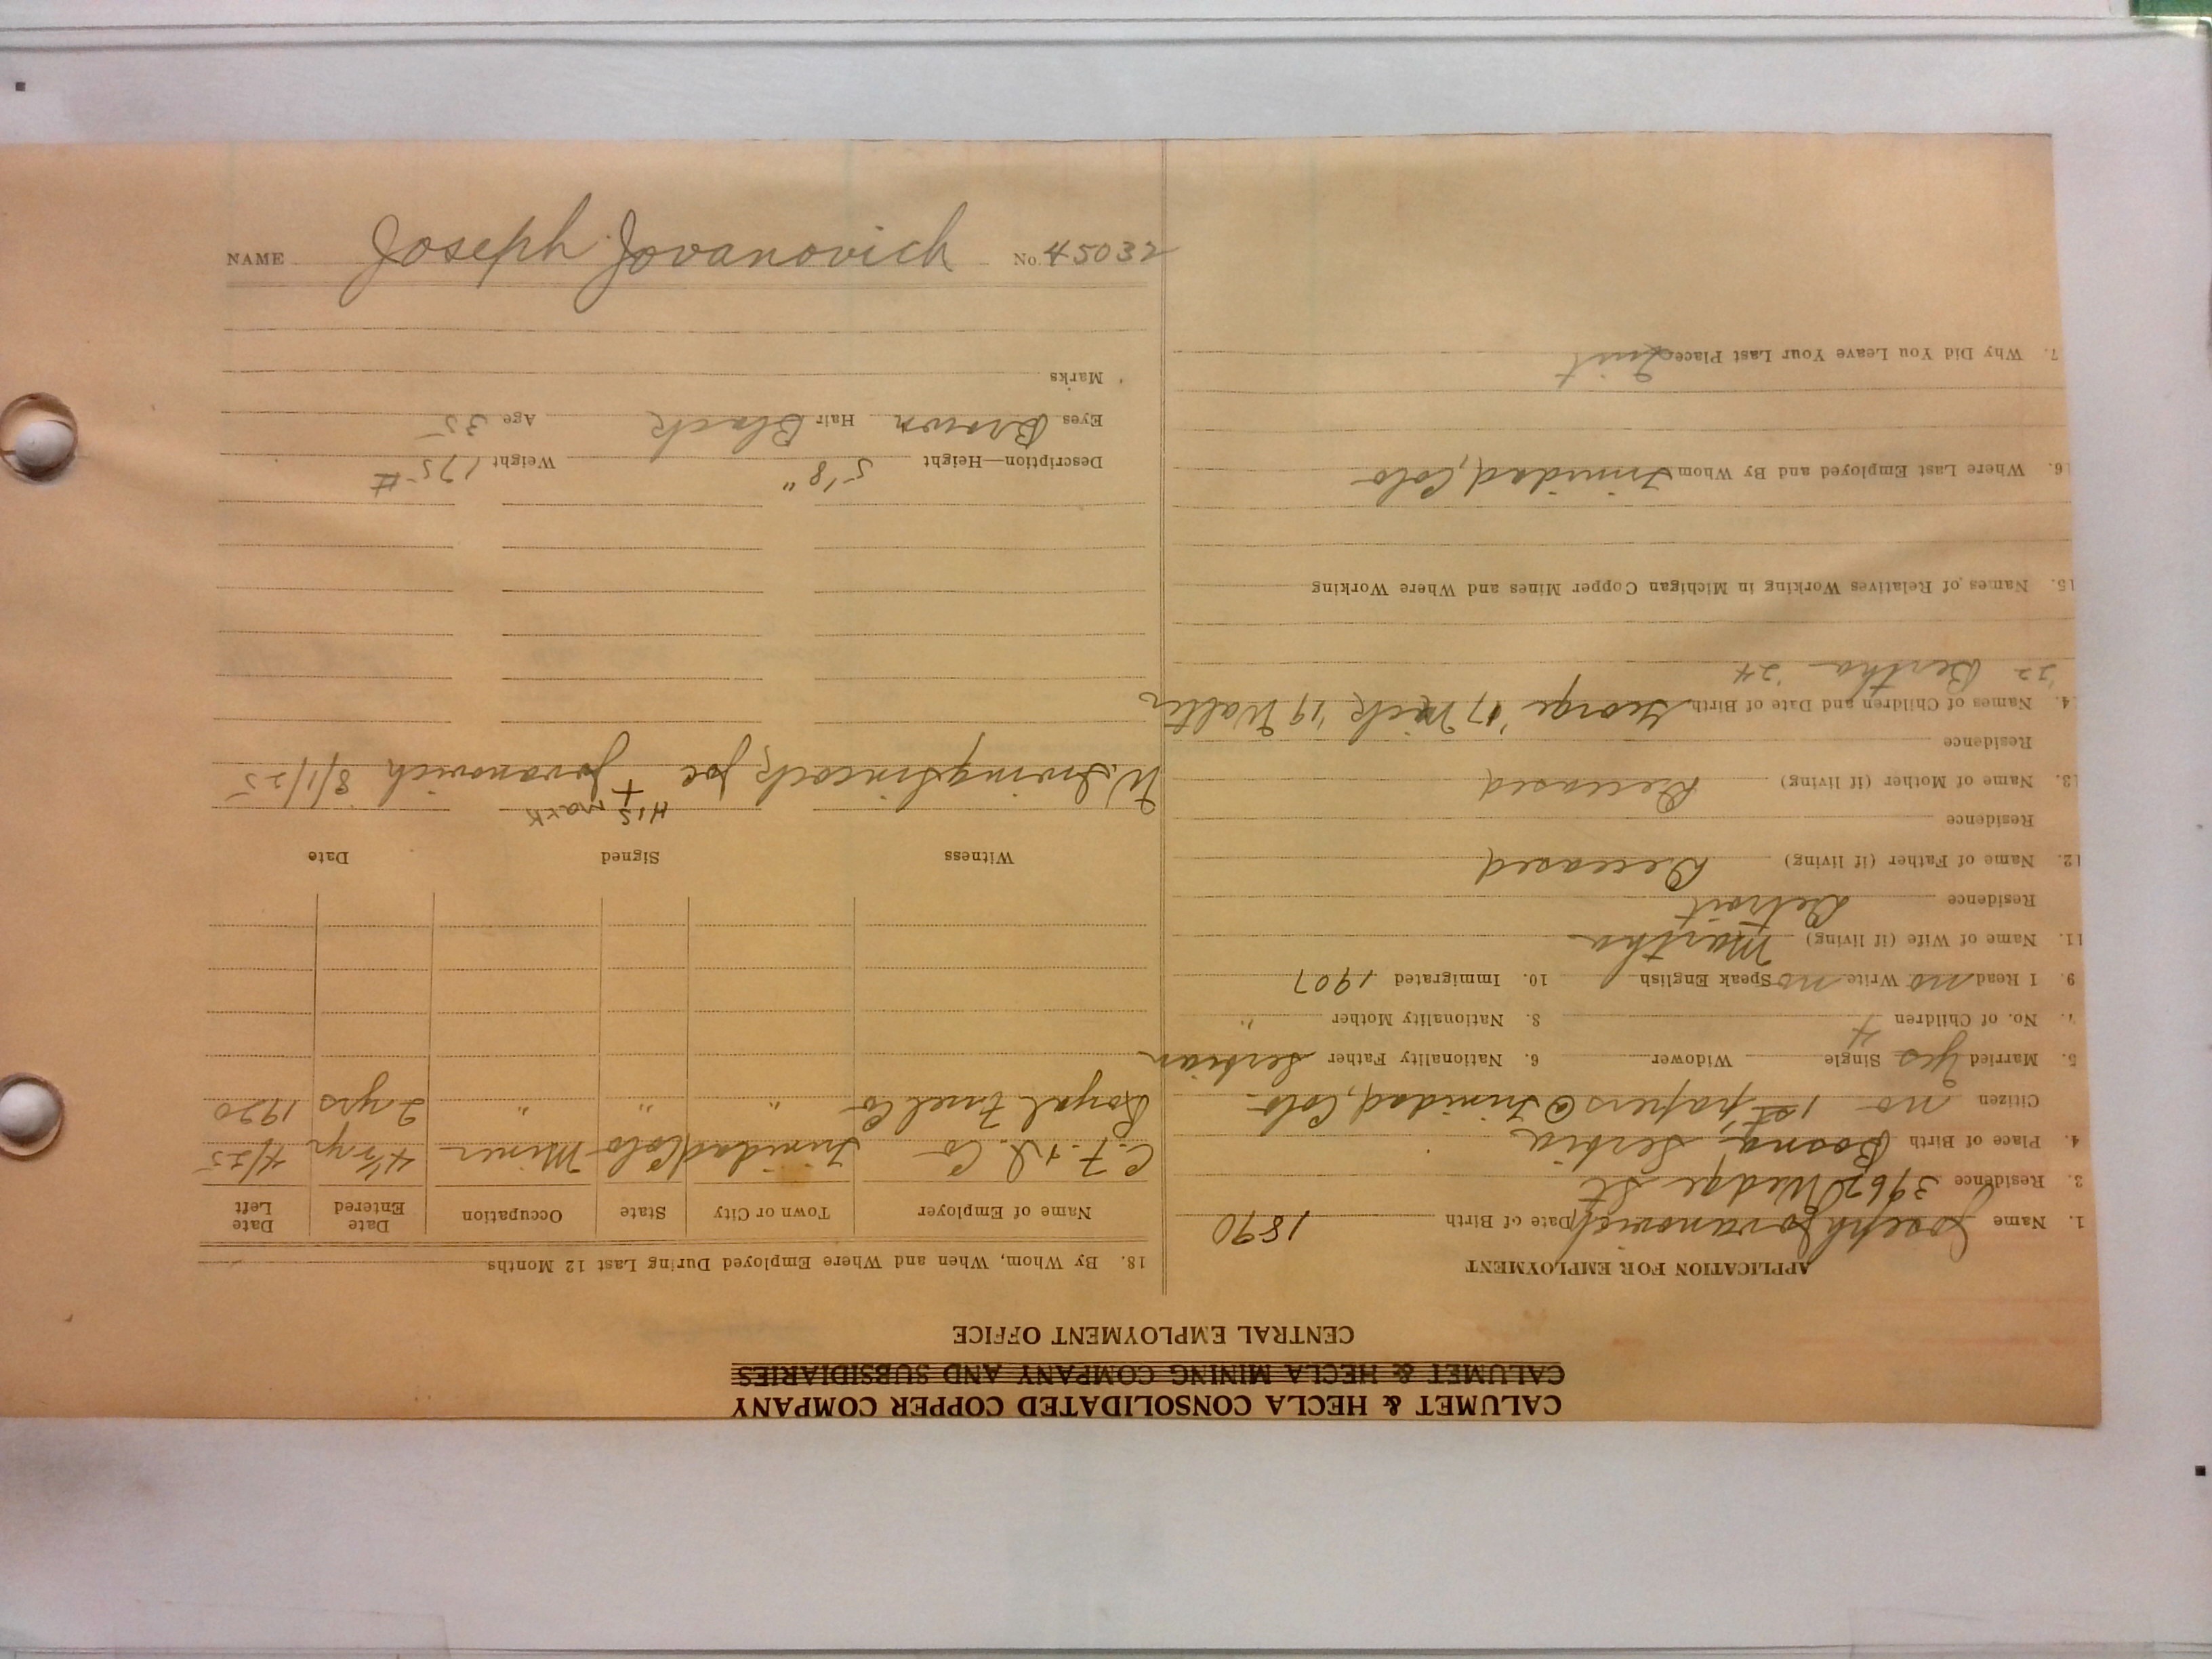 CALUMET & HECLA CONSOLIDATED COPPER COMPANY
CALUMET & HECLA MINING COMPANY AND SUBSIDIARIES
CENTRAL EMPLOYMENT OFFICE
APPLICATION FOR EMPLOYMENT
1. Name Joseph Jovanovich Date of Birth 1890
3. Residence 3967 Wedge St
4. Place of Birth Bosna, Serbia
Citizen no 1st papers @ Trinidad, Colo
5. Married Yes Single Widower 6. Nationality Father Serbian
7. No. of Children 4 8. Nationality Mother "
9. I Read no Write no Speak English 10. Immigrated 1907
11. Name of Wife (if living) Martha
Residence Detroit
12. Name of Father (if living) Deceased
Residence
13. Name of Mother (if living) Deceased
Residence
4. Names of Children and Date of Birth George '17 Nick '19 Walter
'22 Bertha '24
15. Names of Relatives Working in Michigan Copper Mines and Where Working
16. Where Last Employed and By Whom Trinidad, Colo
7. Why Did You Leave Your Last Place Quit
18. By Whom, When and Where Employed During Last 12 Months
Name of Employer Town or City State Occupation Date Entered Date Left
C. F. & I. Co Trinidad Colo Miner 4½ yr 4/25
Royal Fuel Co " " " 2 yrs 1920
Witness Signed Date
His mark
W. Irving Joe + Jovanovich 8/1/25
Description—Height 5'8" Weight 175 #
Eyes Brown Hair Black Age 35
Marks
NAME Joseph Jovanovich No. 45032